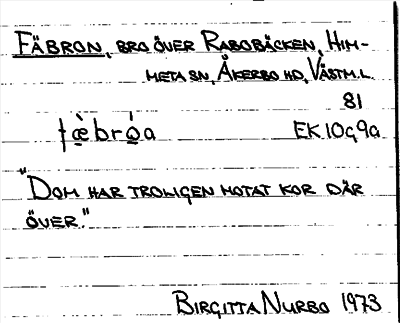 FÄBRON, BRO ÖVER RABOBÄCKEN, HIM-
META SN, ÅKERBO HD, VÄSTM.L.
81
fæ̀brǫ́a EK10g9a
"DOM HAR TROLIGEN MOTAT KOR DÄR
ÖVER."
BIRGITTA NURBO 1973